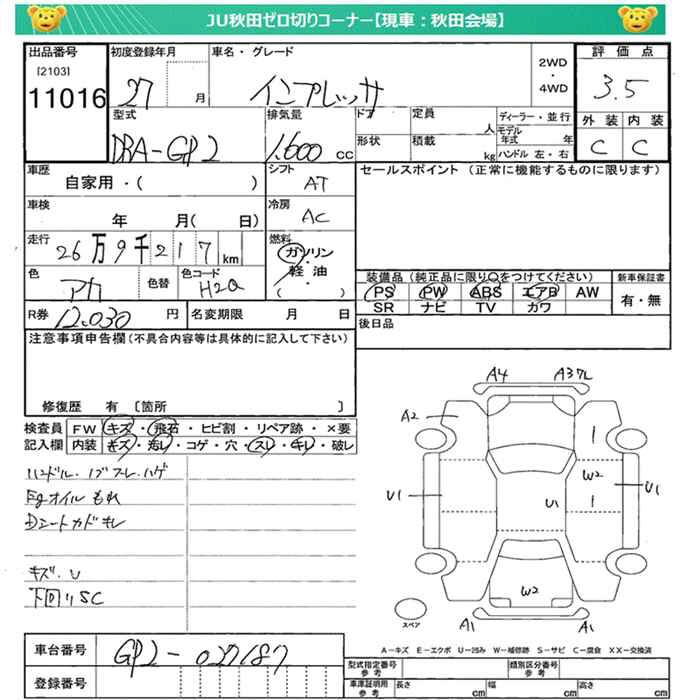 JU秋田ゼロ切りコーナー【現車：秋田会場】
出品番号 初度登録年月 車名・グレード 2WD・4WD 評価点
[2103] 11016 27 月 インプレッサ 3.5
型式 排気量 ドア 定員 人 ディーラー・並行 外装 内装
DBA-GP2 1,600 cc 形状 積載 kg モデル年式 年 ハンドル 左・右 C C
車歴 シフト セールスポイント（正常に機能するものに限ります）
自家用・( ) AT
車検 冷房
年 月( 日) AC
走行 燃料
26万9千217km ガソリン・軽油
( ・ )
色 アカ 色替 色コード H2Q
装備品（純正品に限り○をつけてください） 新車保証書
PS PW ABS エアB AW 有・無
SR ナビ TV カワ
R券 12,030 円 名変期限 月 日 後日品
注意事項申告欄（不具合内容等は具体的に記入して下さい）
修復歴 有 〔箇所 〕
検査員 FW キズ・飛石・ヒビ割・リペア跡・×要
記入欄 内装 キズ・汚レ・コゲ・穴・スレ・キレ・破レ
ハンドル・
Egオイルもれ
キズ・U
下回りSC
A4
A2
1
W2
U1
1
U1
U1
W2
スペア
A1
A1
A－キズ E－エクボ U－凹み W－補修跡 S－サビ C－腐食 XX－交換済
車台番号 GP2-027187
登録番号
型式指定番号 参考 類別区分番号 参考
車庫証明用 参考 長さ cm 幅 cm 高さ cm